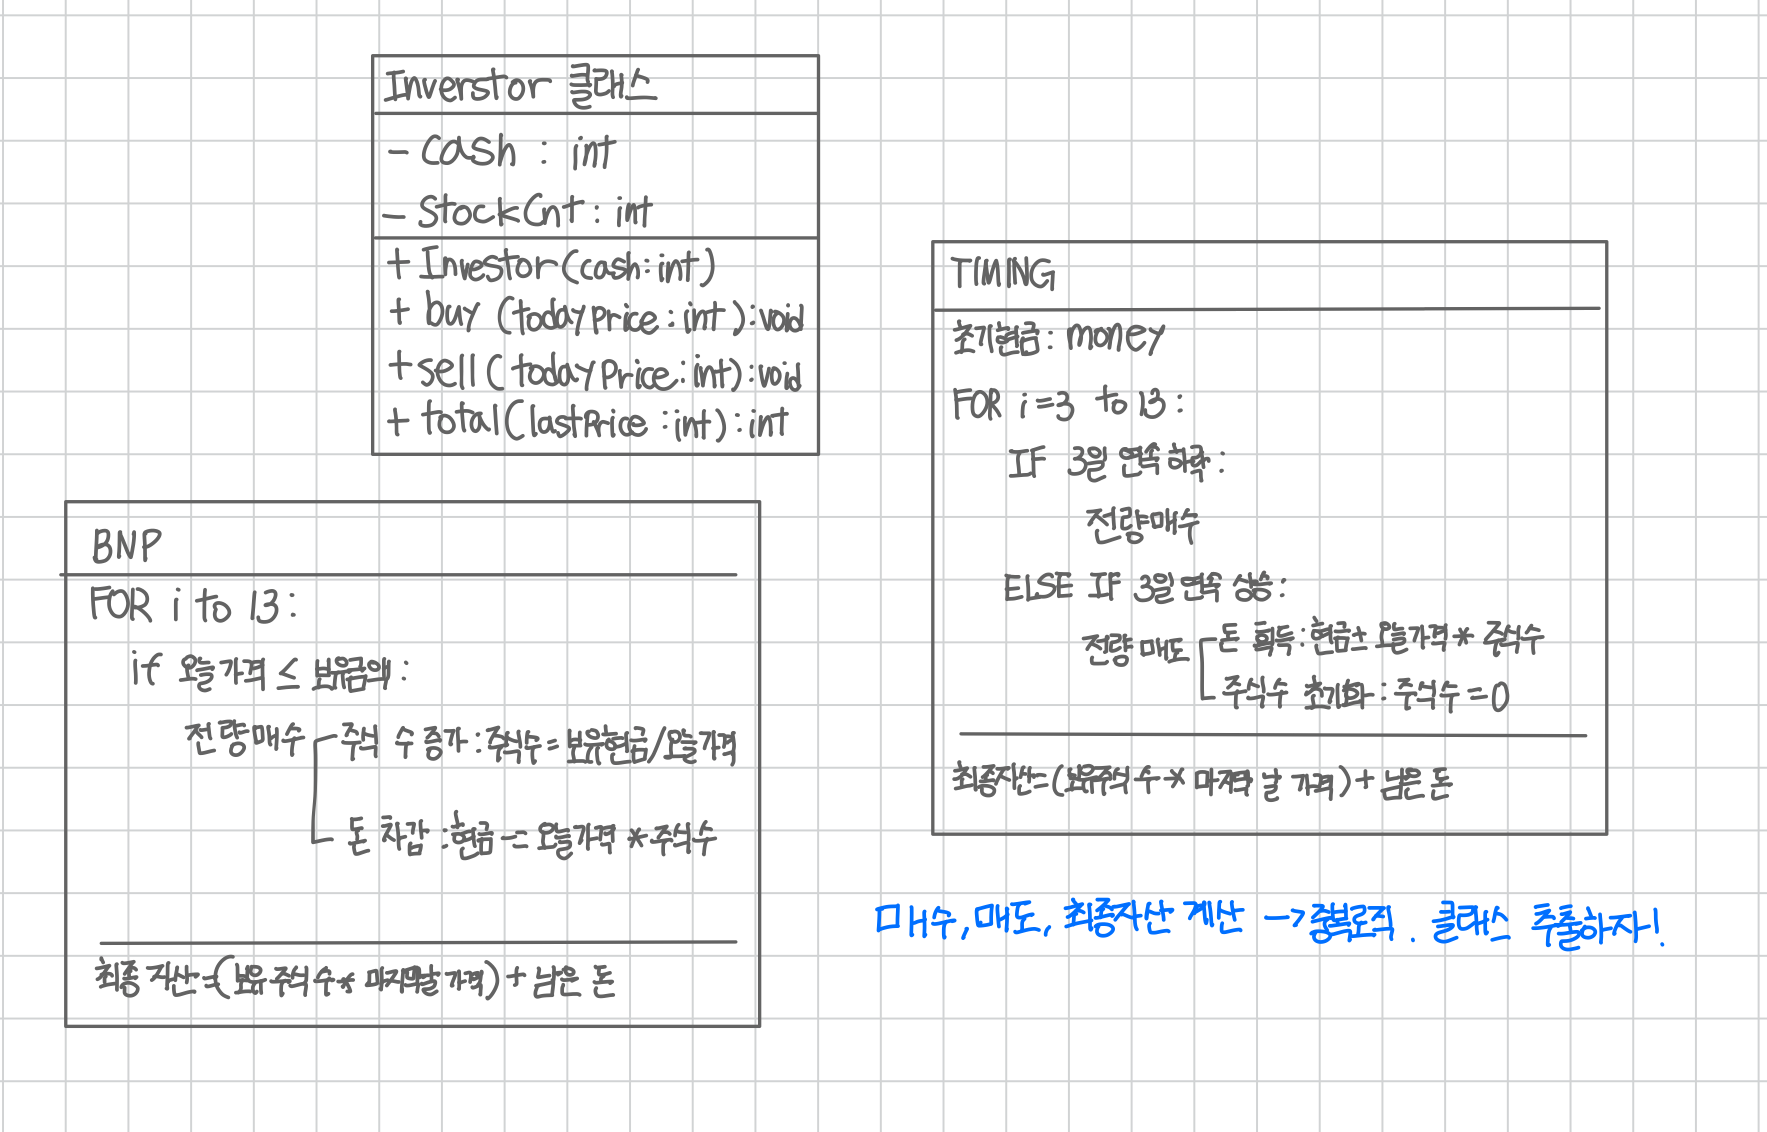 Inverstor 클래스
- cash : int
- StockCnt : int
+ Investor(cash:int)
+ buy (todayPrice : int ):void
+ sell ( todayPrice:int):void
+ total(lastPrice :int):int
BNP
FOR i to 13 :
if 오늘가격 ≤ 보유금액 :
전량매수
주식 수 증가 : 주식수 = 보유현금/오늘가격
돈 차감 : 현금 -= 오늘가격 * 주식수
최종 자산=(보유 주식 수* 마지막날 가격) + 남은 돈
TIMING
초기현금 : money
FOR i =3 to 13 :
IF 3일 연속 하락 :
전량매수
ELSE IF 3일 연속 상승 :
전량 매도
돈 획득 : 현금± 오늘가격 * 주식수
주식수 초기화 : 주식수 = 0
최종자산=(보유주식 수 * 마지막 날 가격) + 남은 돈
매수, 매도, 최종자산 계산 → 중복로직. 클래스 추출하자!